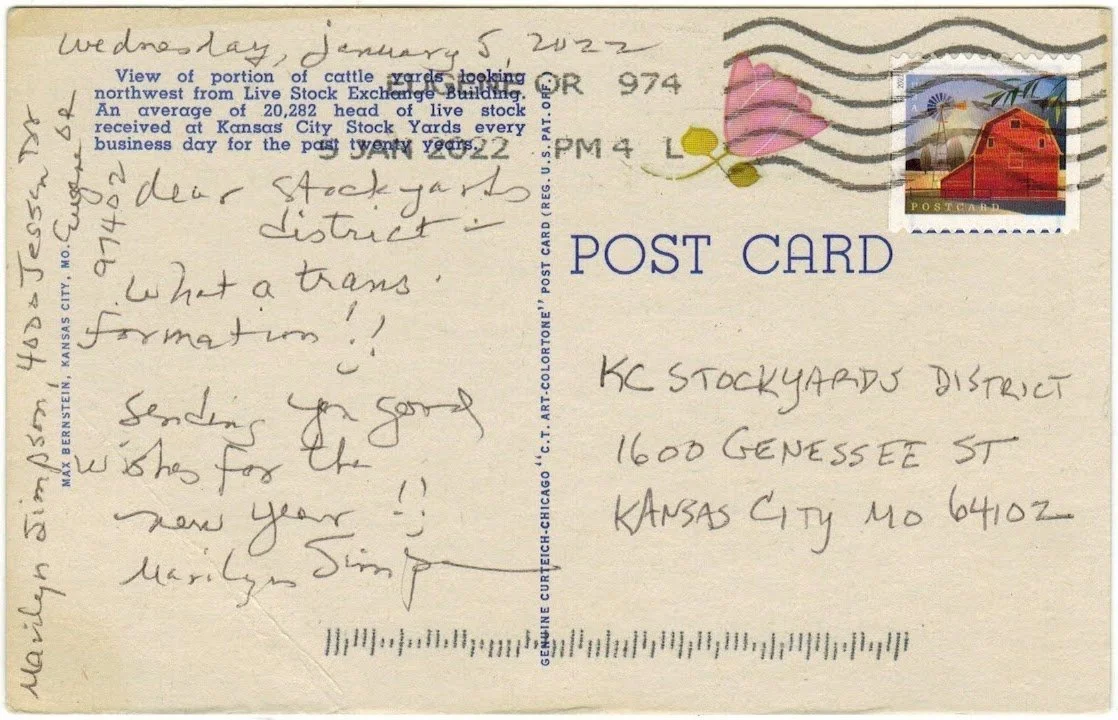 Wednesday, January 5, 2022
View of portion of cattle yards looking
northwest from Live Stock Exchange Building.
An average of 20,282 head of live stock
received at Kansas City Stock Yards every
business day for the past twenty years.
EUGENE OR 974
5 JAN 2022 PM 4 L
dear Stockyards
district –
What a trans.
formation!!
Sending you good
wishes for the
new year!!
Marilyn Simp
Marilyn Simpson, 4000 Jessen Dr
Eugene OR
97402
MAX BERNSTEIN, KANSAS CITY, MO.
GENUINE CURTEICH-CHICAGO "C.T. ART-COLORTONE" POST CARD (REG. U.S. PAT. OFF.)
POSTCARD
POST CARD
KC STOCKYARDS DISTRICT
1600 GENESSEE ST
KANSAS CITY MO 64102